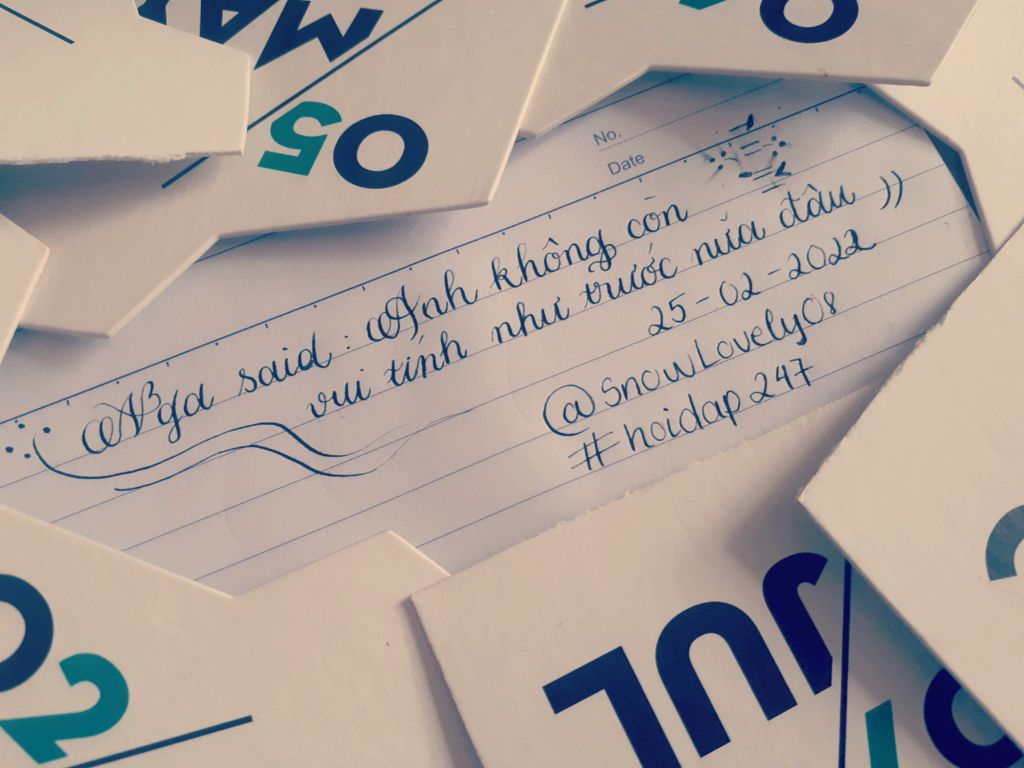 MAY
05
0
No.
Date
Nga said : Anh không còn
vui tính như trước nữa đâu ))
25-02-2022
@SnowLovely08
#hoidap247
02
JUL